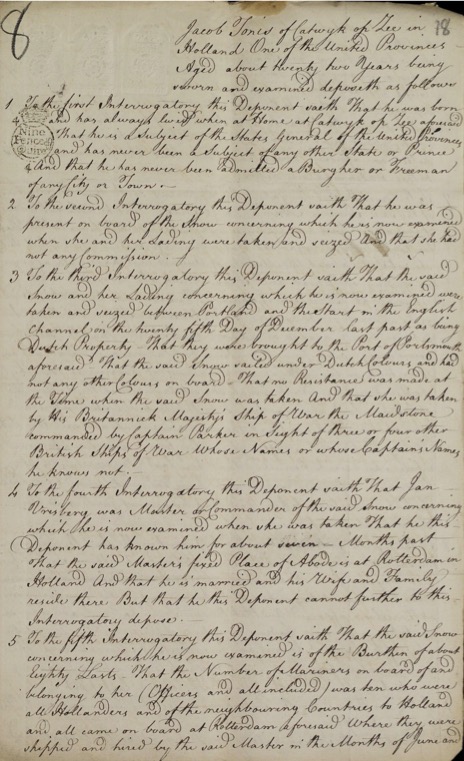 8
18
Jacob Tonis of Catwyk op Zee in
Holland One of the United Provinces
Aged about twenty two Years being
sworn and examined deposeth as follows
1 To the first Interrogatory this Deponent saith That he was born
and has always lived when at Home at Catwyk op Zee aforesaid
That he is a Subject of the States General of the United Provinces
and has never been a Subject of any other State or Prince
And that he has never been admitted a Burgher or Freeman
of any City or Town.
2 To the second Interrogatory this Deponent saith That he was
present on board of the Snow concerning which he is now examined
when she and her Lading were taken and seized And that she had
not any Commission.
3 To the third Interrogatory this Deponent saith That the said
Snow and her Lading concerning which he is now examined were
taken and seized between Portland and the Start in the English
Channel on the twenty fifth Day of December last past as being
Dutch Property That they were brought to the Port of Portsmouth
aforesaid That the said Snow sailed under Dutch Colours and had
not any other Colours on board That no Resistance was made at
the Time when the said Snow was taken And that she was taken
by His Britannick Majesty's Ship of War the Maidstone
commanded by Captain Parker in Sight of three or four other
British Ships of War Whose Names or whose Captain's Names
he knows not.
4 To the fourth Interrogatory this Deponent saith That Jan
was Master or Commander of the said Snow concerning
which he is now examined when she was taken That he this
Deponent has known him for about seven Months past
That the said Master's fixed Place of Abode is at Rotterdam in
Holland And that he is married and his Wife and Family
reside there But that he this Deponent cannot further to this
Interrogatory depose.
5 To the fifth Interrogatory this Deponent saith That the said Snow
concerning which he is now examined is of the Burthen of about
Eighty Lasts That the Number of Mariners on board of and
belonging to her (Officers and all included) was ten who were
all Hollanders and of the neighbouring Countries to Holland
and all came on board at Rotterdam aforesaid Where they were
shipped and hired by the said Master in the Months of June and